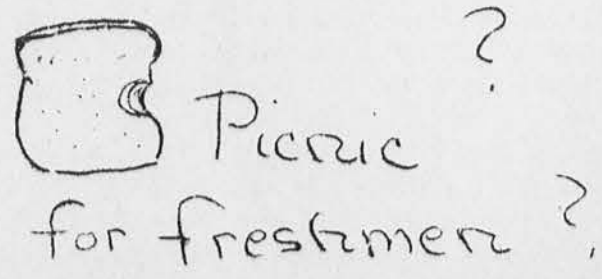 Picnic ?
for freshmen ?